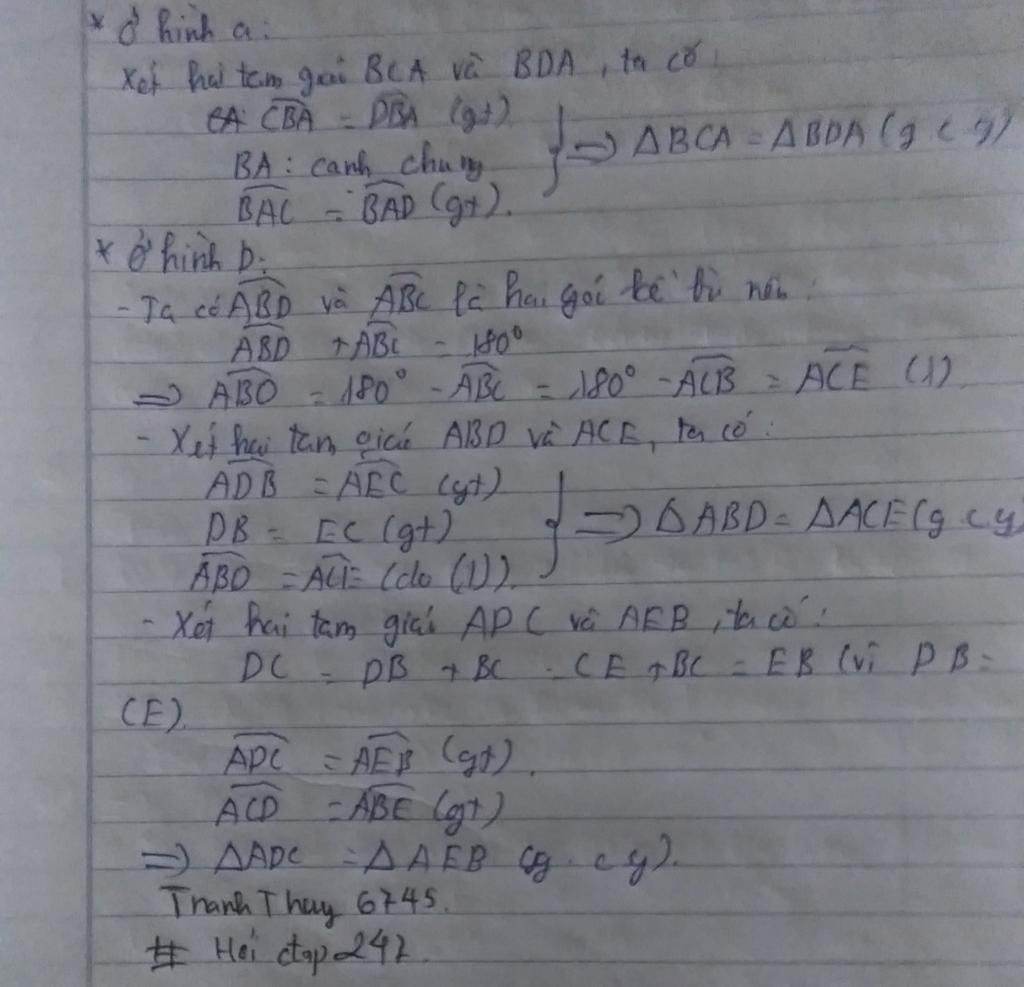 * Ở hình a:
Xét hai tam giác BCA và BDA, ta có:
CBA = DBA (gt)
BA: cạnh chung
BAC = BAD (gt).
} => ΔBCA = ΔBDA (g c g)
* Ở hình b:
- Ta có ABD và ABC là hai góc kề bù nên:
ABD + ABC = 180°
=> ABD = 180° - ABC = 180° - ACB = ACE (1)
- Xét hai tam giác ABD và ACE, ta có:
ADB = AEC (gt)
DB = EC (gt)
ABD = ACE (do (1)).
} => ΔABD = ΔACE (g c g
- Xét hai tam giác ADC và AEB, ta có:
DC = DB + BC = CE + BC = EB (vì DB =
CE).
ADC = AEB (gt).
ACD = ABE (gt)
=> ΔADC = ΔAEB (g c g).
ThanhThuy 6745.
# Hoi dap 247